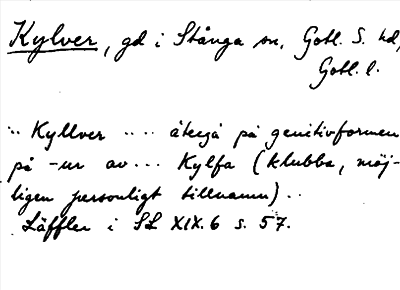 Kylver, gd i Stånga sn, Gotl. S. hd,
Gotl. l.
.. Kyllver .. .. återgå på genitivformen
på -ur av ... Kylfa (klubba, möj-
ligen personligt tillnamn) ..
Läffler i SL XIX.6 s. 57.